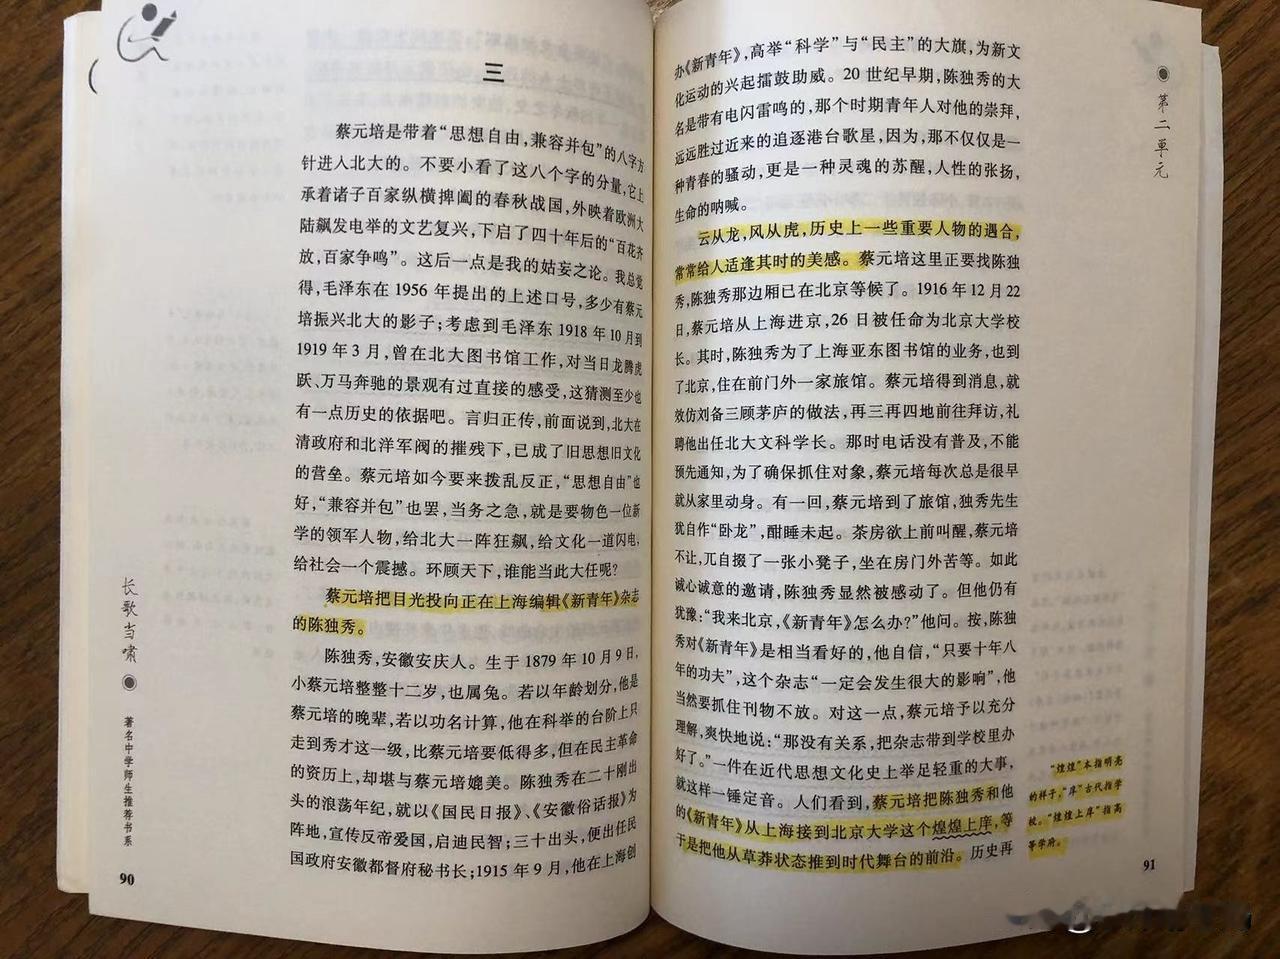 三
蔡元培是带着“思想自由，兼容并包”的八字方
针进入北大的。不要小看了这八个字的分量，它上
承着诸子百家纵横捭阖的春秋战国，外映着欧洲大
陆飙发电举的文艺复兴，下启了四十年后的“百花齐
放，百家争鸣”。这后一点是我的姑妄之论。我总觉
得，毛泽东在 1956 年提出的上述口号，多少有蔡元
培振兴北大的影子；考虑到毛泽东 1918 年 10 月到
1919 年 3 月，曾在北大图书馆工作，对当日龙腾虎
跃、万马奔驰的景观有过直接的感受，这猜测至少也
有一点历史的依据吧。言归正传，前面说到，北大在
清政府和北洋军阀的摧残下，已成了旧思想旧文化
的营垒。蔡元培如今要来拨乱反正，“思想自由”也
好，“兼容并包”也罢，当务之急，就是要物色一位新
学的领军人物，给北大一阵狂飙，给文化一道闪电，
给社会一个震撼。环顾天下，谁能当此大任呢？
蔡元培把目光投向正在上海编辑《新青年》杂志
的陈独秀。
陈独秀，安徽安庆人。生于 1879 年 10 月 9 日，
小蔡元培整整十二岁，也属兔。若以年龄划分，他是
蔡元培的晚辈，若以功名计算，他在科举的台阶上只
走到秀才这一级，比蔡元培要低得多，但在民主革命
的资历上，却堪与蔡元培媲美。陈独秀在二十刚出
头的浪荡年纪，就以《国民日报》、《安徽俗话报》为
阵地，宣传反帝爱国，启迪民智；三十出头，便出任民
国政府安徽都督府秘书长；1915 年 9 月，他在上海创
长歌当啸
著名中学师生推荐书系
90
办《新青年》，高举“科学”与“民主”的大旗，为新文
化运动的兴起擂鼓助威。20 世纪早期，陈独秀的大
名是带有电闪雷鸣的，那个时期青年人对他的崇拜，
远远胜过近来的追逐港台歌星，因为，那不仅仅是一
种青春的骚动，更是一种灵魂的苏醒，人性的张扬，
生命的呐喊。
云从龙，风从虎，历史上一些重要人物的遇合，
常常给人适逢其时的美感。蔡元培这里正要找陈独
秀，陈独秀那边厢已在北京等候了。1916 年 12 月 22
日，蔡元培从上海进京，26 日被任命为北京大学校
长。其时，陈独秀为了上海亚东图书馆的业务，也到
了北京，住在前门外一家旅馆。蔡元培得到消息，就
效仿刘备三顾茅庐的做法，再三再四地前往拜访，礼
聘他出任北大文科学长。那时电话没有普及，不能
预先通知，为了确保抓住对象，蔡元培每次总是很早
就从家里动身。有一回，蔡元培到了旅馆，独秀先生
犹自作“卧龙”，酣睡未起。茶房欲上前叫醒，蔡元培
不让，兀自掇了一张小凳子，坐在房门外苦等。如此
诚心诚意的邀请，陈独秀显然被感动了。但他仍有
犹豫：“我来北京，《新青年》怎么办？”他问。按，陈独
秀对《新青年》是相当看好的，他自信，“只要十年八
年的功夫”，这个杂志“一定会发生很大的影响”，他
当然要抓住刊物不放。对这一点，蔡元培予以充分
理解，爽快地说：“那没有关系，把杂志带到学校里办
好了。”一件在近代思想文化史上举足轻重的大事，
就这样一锤定音。人们看到，蔡元培把陈独秀和他
的《新青年》从上海接到北京大学这个煌煌上庠，等
于是把他从草莽状态推到时代舞台的前沿。历史再
第二单元
“煌煌”本指明亮
的样子，“庠”古代指学
校。“煌煌上庠”指高
等学府。
91